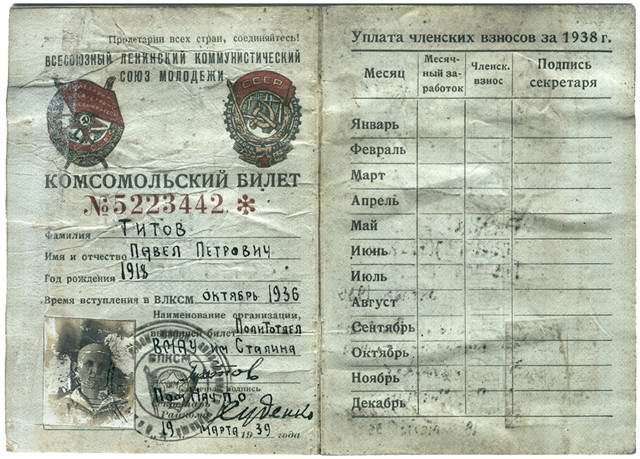 Пролетарии всех стран, соединяйтесь!
ВСЕСОЮЗНЫЙ ЛЕНИНСКИЙ КОММУНИСТИЧЕСКИЙ
СОЮЗ МОЛОДЕЖИ
СССР
КОМСОМОЛЬСКИЙ БИЛЕТ
№5223442 *
Фамилия ТИТОВ
Имя и отчество ПАВЕЛ ПЕТРОВИЧ
Год рождения 1918
Время вступления в ВЛКСМ ОКТЯБРЬ 1936
Наименование организации,
выдавшей билет ПОЛИТОТДЕЛ
им Сталина
ВЛКСМ
подпись
Райкома Худенко
19 МАРТА 1939 года
Уплата членских взносов за 1938 г.
Месяц Месяч-ный за-работок Членск. взнос Подпись секретаря
Январь
Февраль
Март
Апрель
Май
Июнь
Июль
Август
Сентябрь
Октябрь
Ноябрь
Декабрь